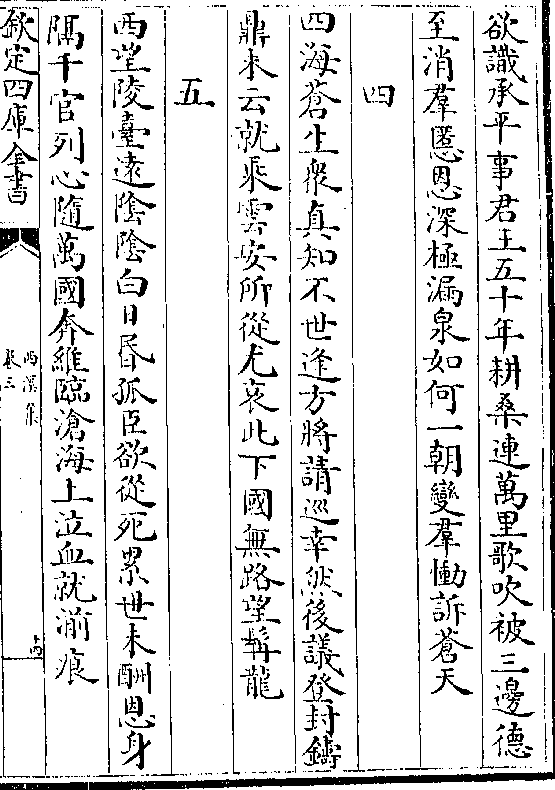 欲識承平事君王五十年耕桑連萬里歌吹被三邊德
至消羣慝恩深極漏泉如何一朝變羣慟訴蒼天
四
四海蒼生衆真知不世逢方將請巡幸然後議登封鑄
鼎未云就乘雲安所從尤哀此下國無路望髯龍
五
西望陵臺遠陰陰白日昏孤臣欲從死累世未酬恩身
隔千官列心隨萬國奔維臨滄海上泣血就湔痕
欽定四庫全書
西溪集
卷三